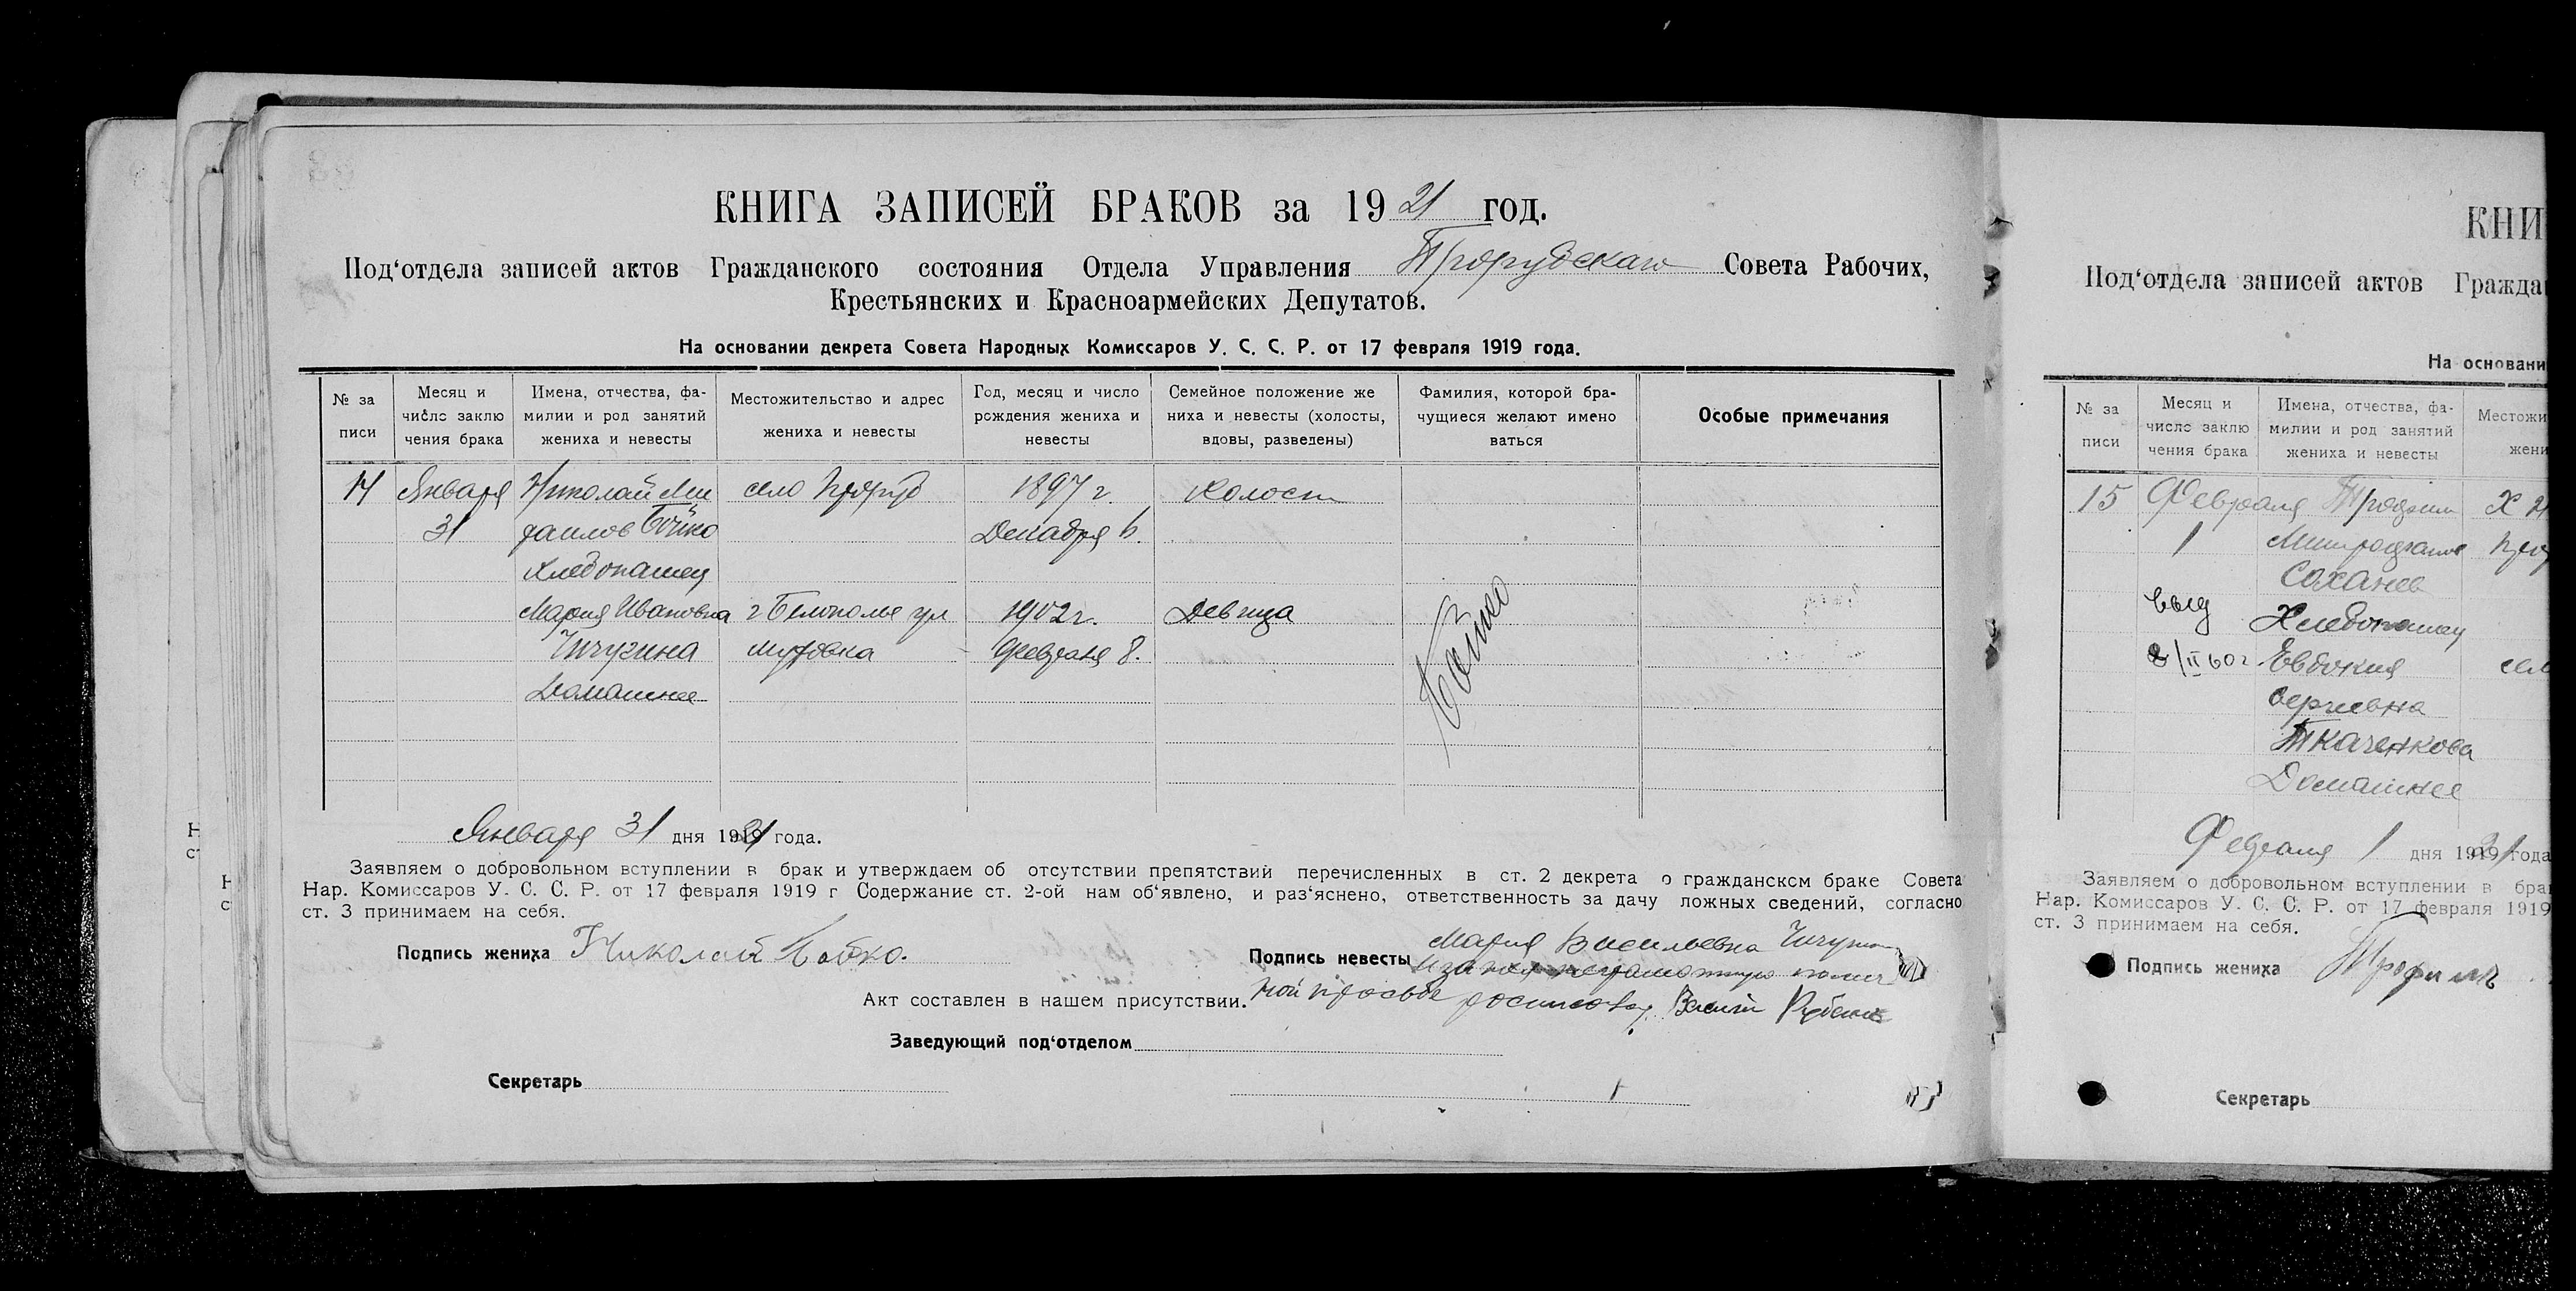 КНИГА ЗАПИСЕЙ БРАКОВ за 1921 год.
Под‘отдела записей актов Гражданского состояния Отдела Управления Прорубскаго Совета Рабочих,
Крестьянских и Красноармейских Депутатов.
На основании декрета Совета Народных Комиссаров У. С. С. Р. от 17 февраля 1919 года.
№ за
писи
Месяц и
число заклю
чения брака
Имена, отчества, фа-
милии и род занятий
жениха и невесты
Местожительство и адрес
жениха и невесты
Год, месяц и число
рождения жениха и
невесты
Семейное положение же
ниха и невесты (холосты,
вдовы, разведены)
Фамилия, которой бра-
чущиеся желают имено
ваться
Особые примечания
14 Января Николай Ми село Проруб 1897 г. Холост
31 хаилов Бойко Декабря 6.
Хлебопашец
Мария Ивановна г Белополье ул 1902 г. Девица
Чичугина Февраля 8.
Домашнее
Бойко
Января 31 дня 1921 года.
Заявляем о добровольном вступлении в брак и утверждаем об отсутствии препятствий перечисленных в ст. 2 декрета о гражданском браке Совета
Нар. Комиссаров У. С. С. Р. от 17 февраля 1919 г Содержание ст. 2-ой нам об‘явлено, и раз‘яснено, ответственность за дачу ложных сведений, согласно
ст. 3 принимаем на себя.
Подпись жениха Николай Бойко.
Подпись невесты Мария Васильевна
неграмотную
просьбе
Акт составлен в нашем присутствии.
Заведующий под‘отделом
Секретарь
КНИ
Под‘отдела записей актов Гражда
На основани
№ за
писи
Месяц и
число заклю
чения брака
Имена, отчества, фа-
милии и род занятий
жениха и невесты
Местожи
жени
15 Февраля Трофим
1 Митрофанов
Соханев
Хлебопашец
8/II 60 г Евдокия
Сергиевна
Ткаченкова
Домашнее
Февраля 1 дня 1921 года
Заявляем о добровольном вступлении в бра
Нар. Комиссаров У. С. С. Р. от 17 февраля 1919
ст. 3 принимаем на себя.
Подпись жениха Трофим
Секретарь